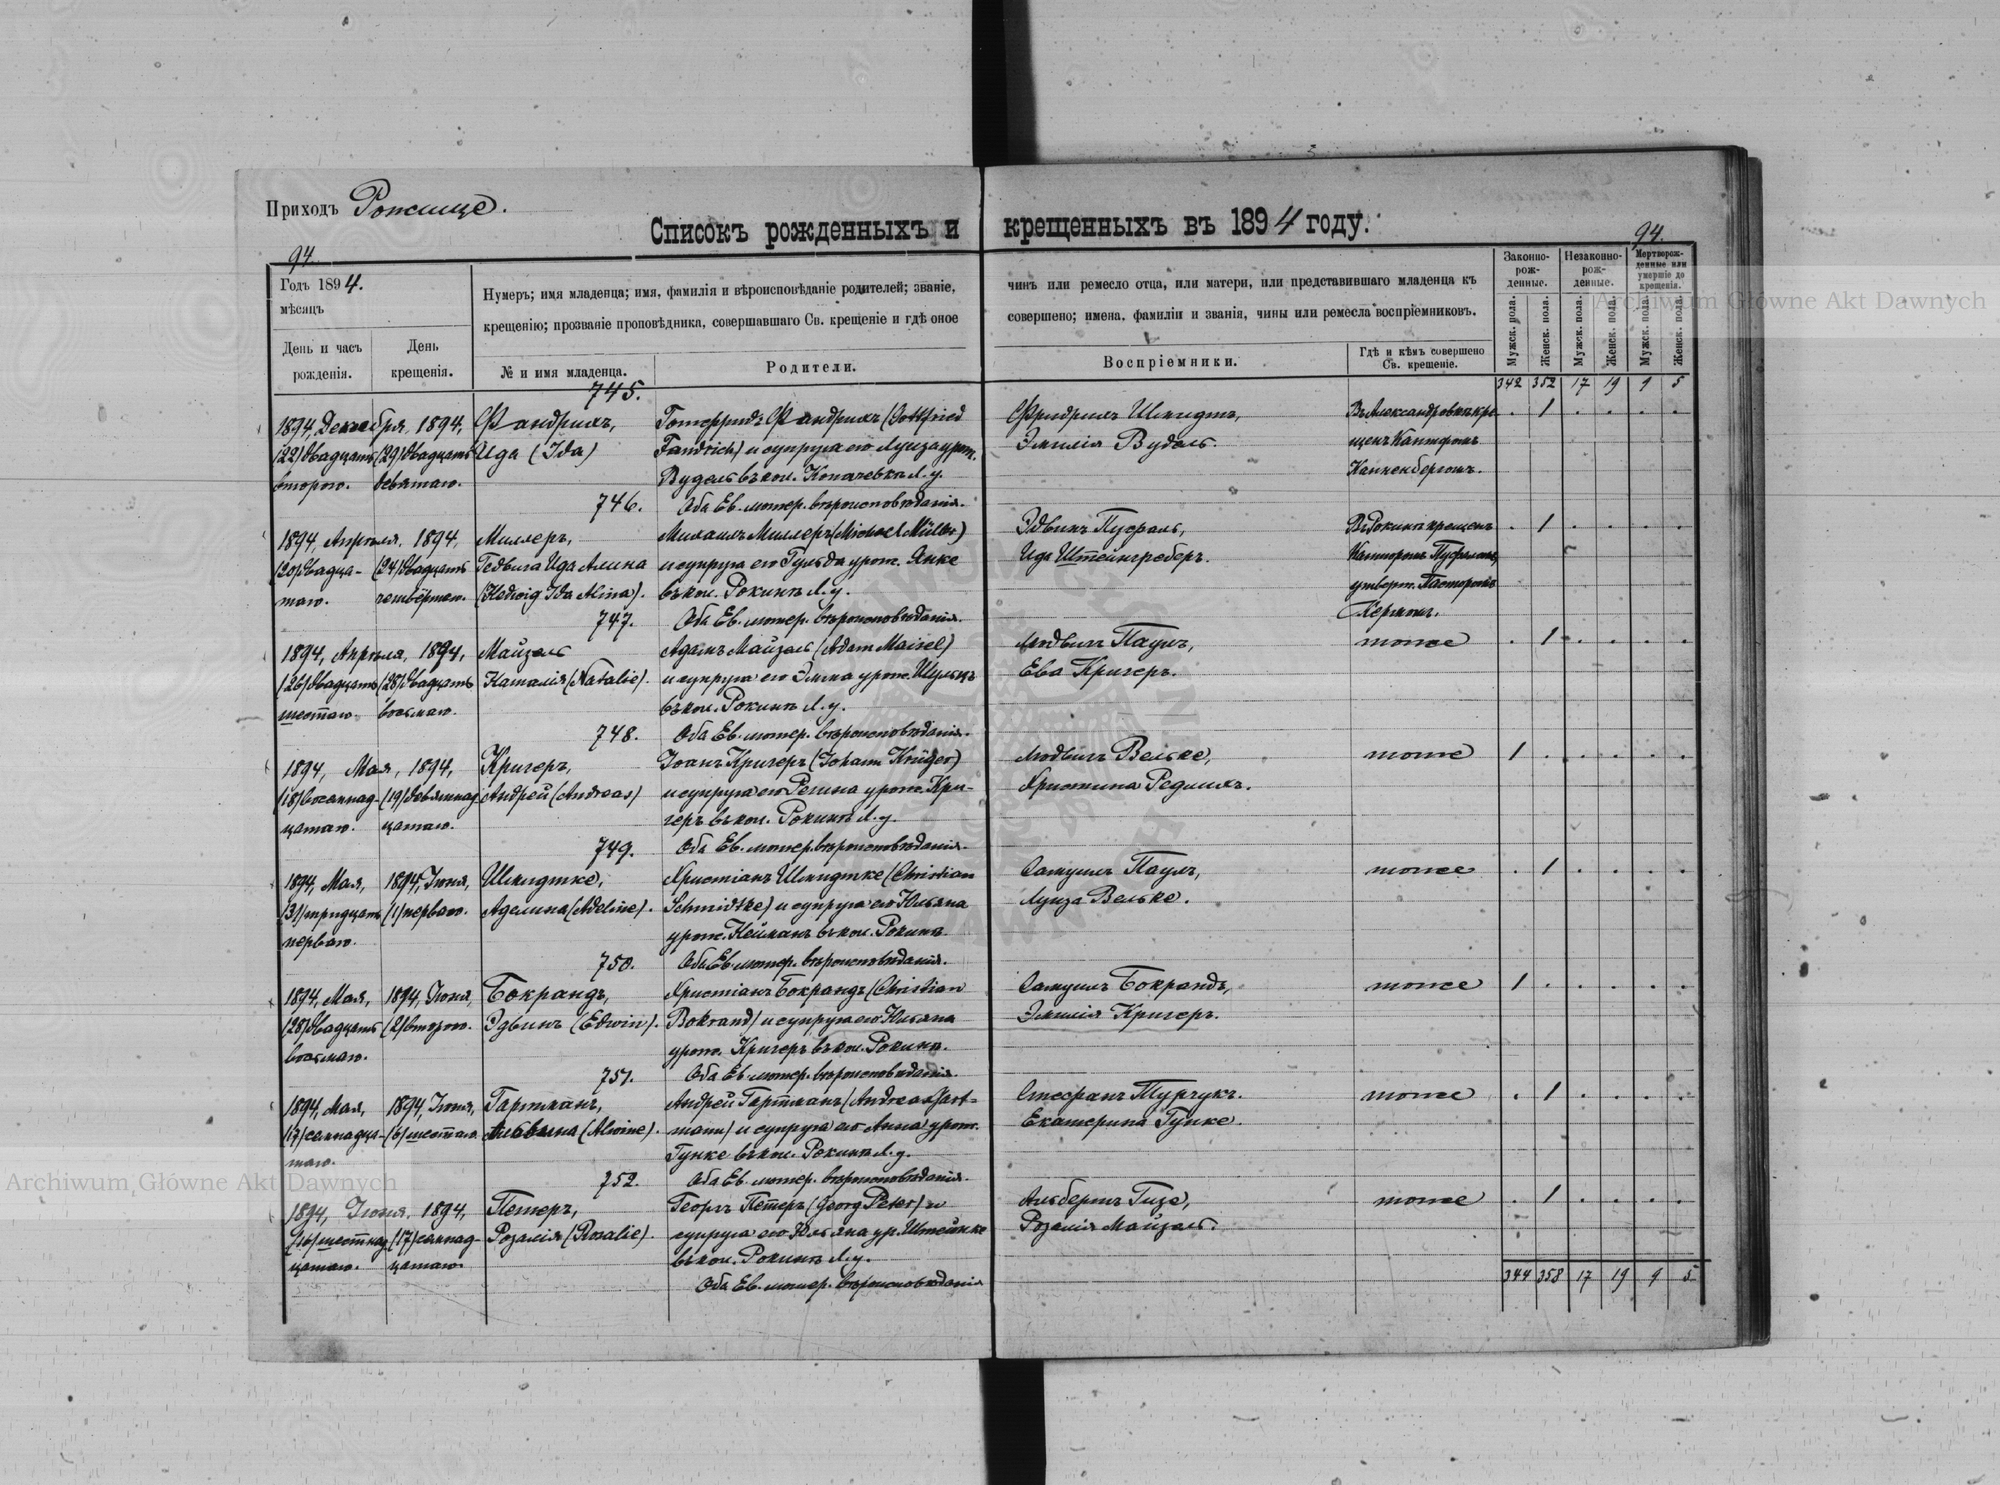 Приходъ Рожище.
Списокъ рожденныхъ и крещенныхъ въ 1894 году.
94.
94.
Годъ 1894.
мѣсяцъ
День и часъ рожденія.
День крещенія.
Нумеръ; имя младенца; имя, фамилія и вѣроисповѣданіе родителей; званіе,
чинъ или ремесло отца, или матери, или представившаго младенца къ
крещенію; прозваніе проповѣдника, совершавшаго Св. крещеніе и гдѣ оное
совершено; имена, фамиліи и званія, чины или ремесла воспріемниковъ.
№ и имя младенца.
Родители.
Воспріемники.
Гдѣ и кѣмъ совершено Св. крещеніе.
Законно-рож-денные.
Незаконно-рож-денные.
Мертворож-денные или умершіе до крещенія.
Мужск. пола.
Женск. пола.
Мужск. пола.
Женск. пола.
Мужск. пола.
Женск. пола.
342 352 17 19 9 5
745.
1894, Декабря, 1894, Фандрихъ, Готфридъ Фандрихъ (Gottfried Фридрихъ Шмидтъ, Въ Александровкѣ кре- . 1 . . . .
(22) двадцать (29) двадцать Ида (Ida) Fandrich) и супруга его Луиза урож. Эмилія Вудель. щенъ Канторомъ
второго. девятаго. Вудель въ кол. Копачевка Л. у. Канненбергомъ.
746. Оба Ев. лютер. вѣроисповѣданія.
1894, Апрѣля, 1894, Миллеръ, Михаилъ Миллеръ (Michael Müller) Эдвинъ Пуфаль, Въ Рокинѣ крещенъ . 1 . . . .
(20) двадца- (24) двадцать Гедвига Ида Алина и супруга его Гульда урож. Янке Ида Штейнгреберъ. Канторомъ Пуфалемъ,
таго. четвёртаго. (Hedwig Ida Alina). въ кол. Рокинѣ Л. у. утверж. Пасторомъ
747. Оба Ев. лютер. вѣроисповѣданія. Кермомъ.
1894, Апрѣля, 1894, Майзель Адамъ Майзель (Adam Maisel) Людвигъ Паулъ, тоже . 1 . . . .
(26) двадцать (28) двадцать Наталія (Natalie). и супруга его Эмма урож. Шульцъ Ева Кригеръ.
шестаго. восьмаго. въ кол. Рокинѣ Л. у.
748. Оба Ев. лютер. вѣроисповѣданія.
1894, Мая, 1894, Кригеръ, Іоанъ Кригеръ (Johann Krüger) Людвигъ Вельке, тоже 1 . . . . .
(18) восемнад- (19) девятнад- Андрей (Andreas) и супруга его Регина урож. Кри- Христина Редлихъ.
цатаго. цатаго. геръ въ кол. Рокинѣ Л. у.
749. Оба Ев. лютер. вѣроисповѣданія.
1894, Мая, 1894, Іюня, Шмидтке, Христіанъ Шмидтке (Christian Самуилъ Паулъ, тоже . 1 . . . .
(31) тридцать (1) перваго. Аделина (Adeline). Schmidtke) и супруга его Юльяна Луиза Вельке.
перваго. урож. Нейманъ въ кол. Рокинѣ
750. Оба Ев. лютер. вѣроисповѣданія.
1894, Мая, 1894, Іюня, Бокрандъ, Христіанъ Бокрандъ (Christian Самуилъ Бокрандъ, тоже 1 . . . . .
(28) двадцать (2) второго. Эдвинъ (Edwin). Bokrand) и супруга его Юльяна Эмилія Кригеръ.
восьмаго. урож. Кригеръ въ кол. Рокинѣ.
751. Оба Ев. лютер. вѣроисповѣданія.
1894, Мая, 1894, Іюня, Гартманъ, Андрей Гартманъ (Andreas Hart- Стефанъ Турчукъ. тоже . 1 . . . .
(17) семнадца- (6) шестаго. Альвина (Alwine). mann) и супруга его Анна урож. Екатерина Гунке.
таго. Гунке въ кол. Рокинѣ Л. у.
752. Оба Ев. лютер. вѣроисповѣданія.
1894, Іюня, 1894, Петеръ, Георгъ Петеръ (Georg Peter) и Альбертъ Гизе, тоже . 1 . . . .
(16) шестнад- (17) семнад- Розалія (Rosalie). супруга его Юльяна ур. Штейнке Розалія Майзель.
цатаго. цатаго. въ кол. Рокинѣ Л. у.
Оба Ев. лютер. вѣроисповѣданія
344 358 17 19 9 5
Archiwum Główne Akt Dawnych
Archiwum Główne Akt Dawnych